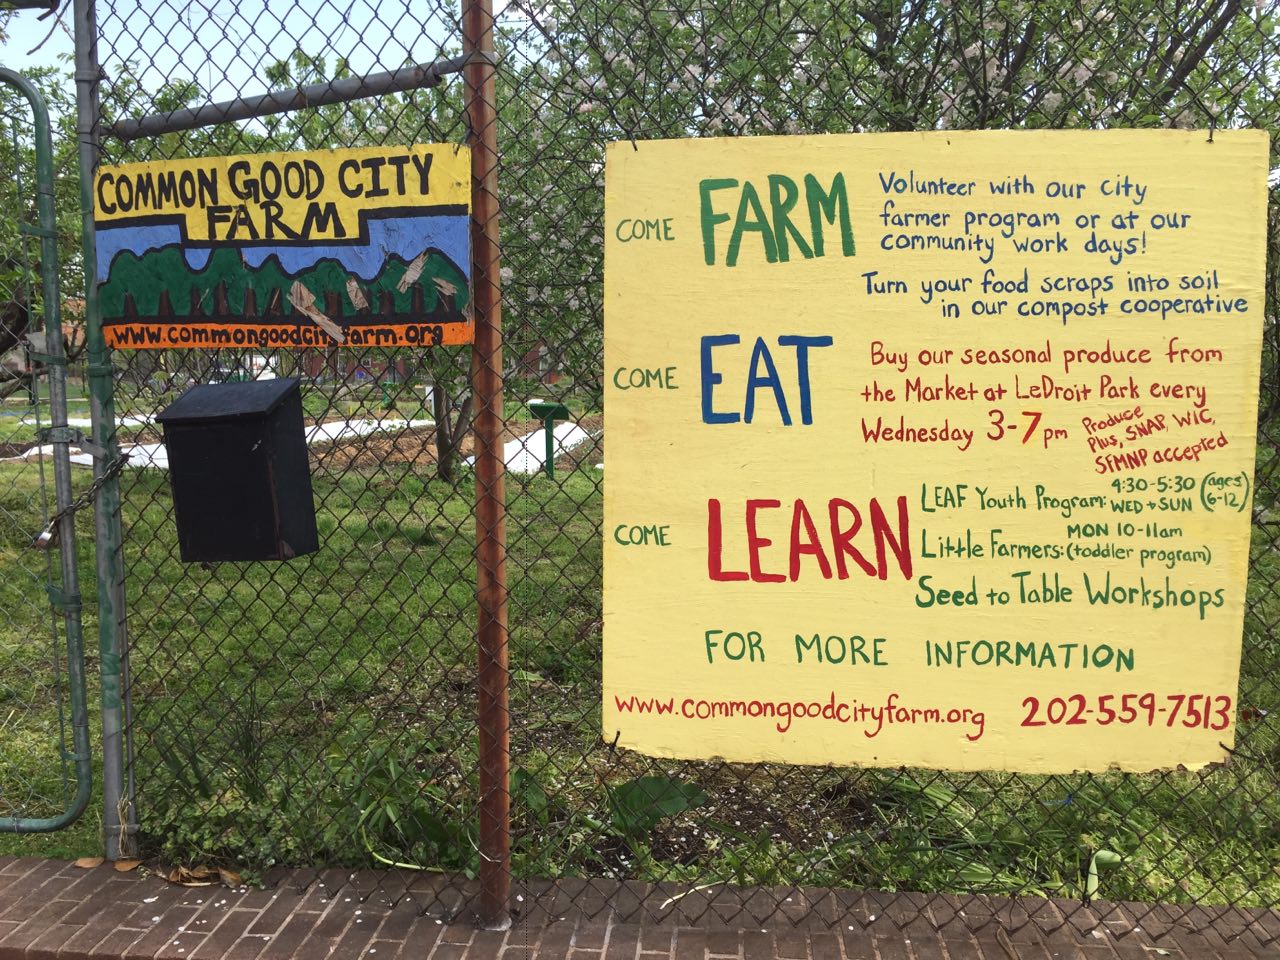 COMMON GOOD CITY
FARM
www.commongoodcityfarm.org
COME FARM
Volunteer with our city
farmer program or at our
community work days!
Turn your food scraps into soil
in our compost cooperative
COME EAT
Buy our seasonal produce from
the Market at LeDroit Park every
Wednesday 3-7pm
Produce
Plus, SNAP, WIC,
SFMNP accepted
COME LEARN
LEAF Youth Program: 4:30-5:30 (ages
WED + SUN 6-12)
MON 10-11am
Little Farmers: (toddler program)
Seed to Table Workshops
FOR MORE INFORMATION
www.commongoodcityfarm.org 202-559-7513